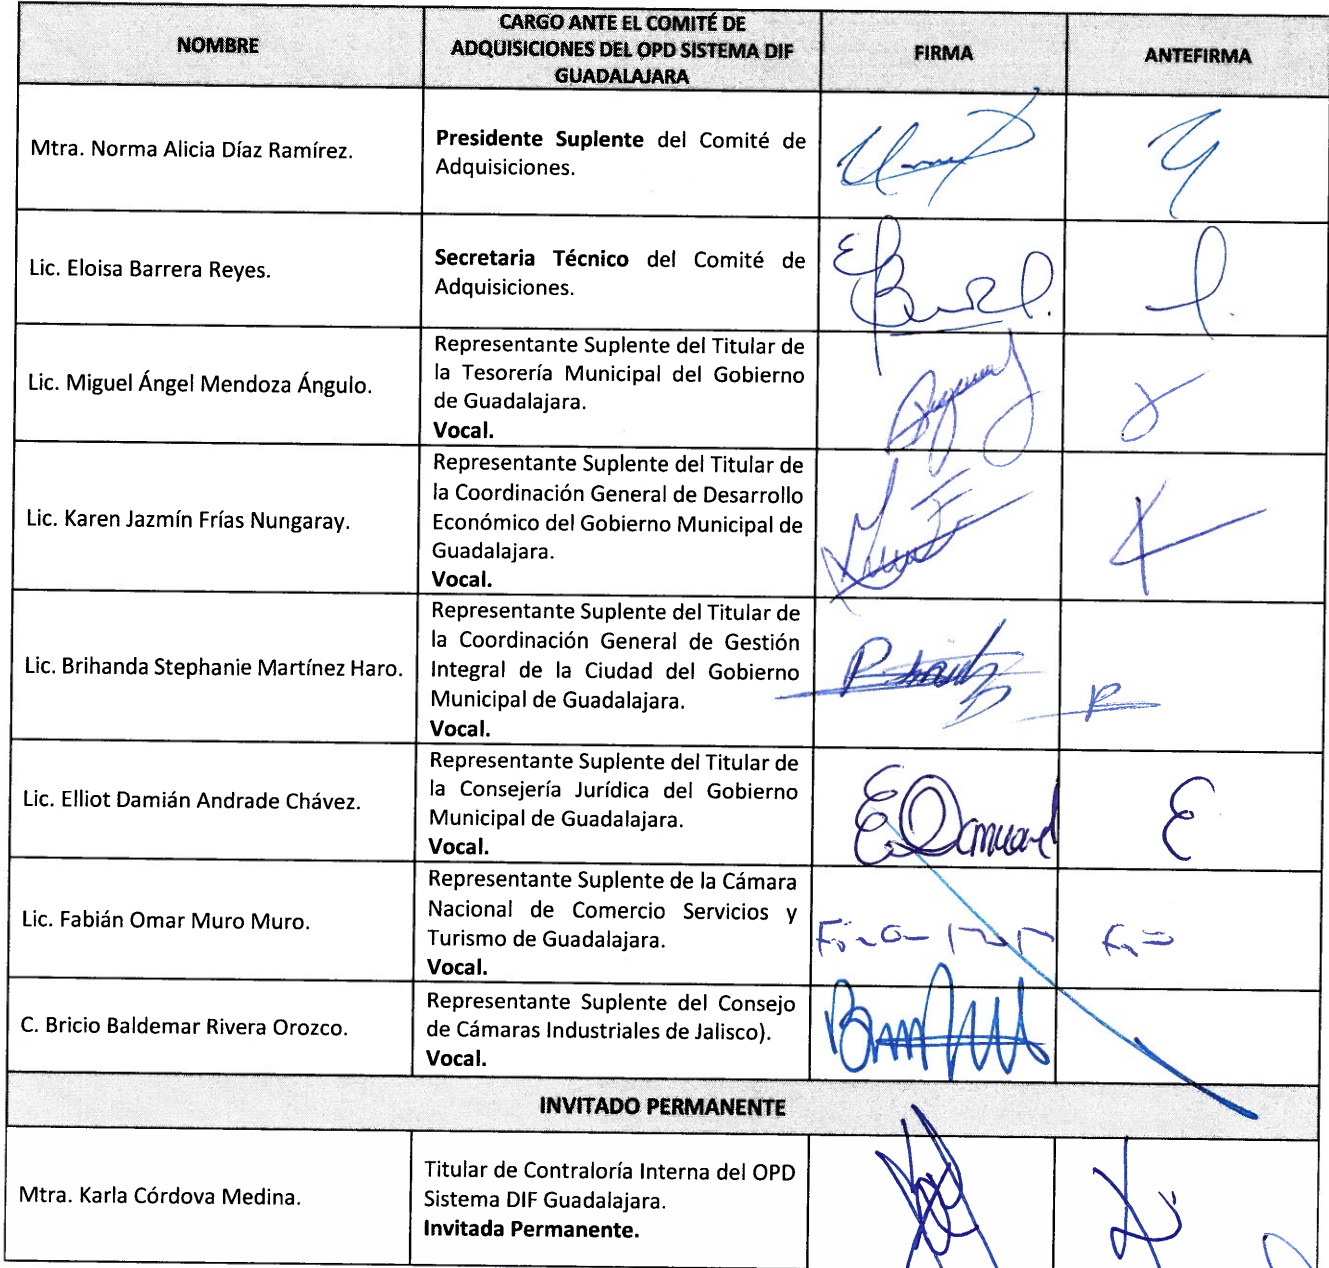 NOMBRE
CARGO ANTE EL COMITÉ DE
ADQUISICIONES DEL OPD SISTEMA DIF
GUADALAJARA
FIRMA
ANTEFIRMA
Mtra. Norma Alicia Díaz Ramírez.
Presidente Suplente del Comité de
Adquisiciones.
Lic. Eloisa Barrera Reyes.
Secretaria Técnico del Comité de
Adquisiciones.
Lic. Miguel Ángel Mendoza Ángulo.
Representante Suplente del Titular de
la Tesorería Municipal del Gobierno
de Guadalajara.
Vocal.
Lic. Karen Jazmín Frías Nungaray.
Representante Suplente del Titular de
la Coordinación General de Desarrollo
Económico del Gobierno Municipal de
Guadalajara.
Vocal.
Lic. Brihanda Stephanie Martínez Haro.
Representante Suplente del Titular de
la Coordinación General de Gestión
Integral de la Ciudad del Gobierno
Municipal de Guadalajara.
Vocal.
Lic. Elliot Damián Andrade Chávez.
Representante Suplente del Titular de
la Consejería Jurídica del Gobierno
Municipal de Guadalajara.
Vocal.
Lic. Fabián Omar Muro Muro.
Representante Suplente de la Cámara
Nacional de Comercio Servicios y
Turismo de Guadalajara.
Vocal.
C. Bricio Baldemar Rivera Orozco.
Representante Suplente del Consejo
de Cámaras Industriales de Jalisco).
Vocal.
INVITADO PERMANENTE
Mtra. Karla Córdova Medina.
Titular de Contraloría Interna del OPD
Sistema DIF Guadalajara.
Invitada Permanente.